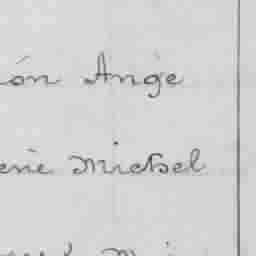 ón Ange
ené Michel